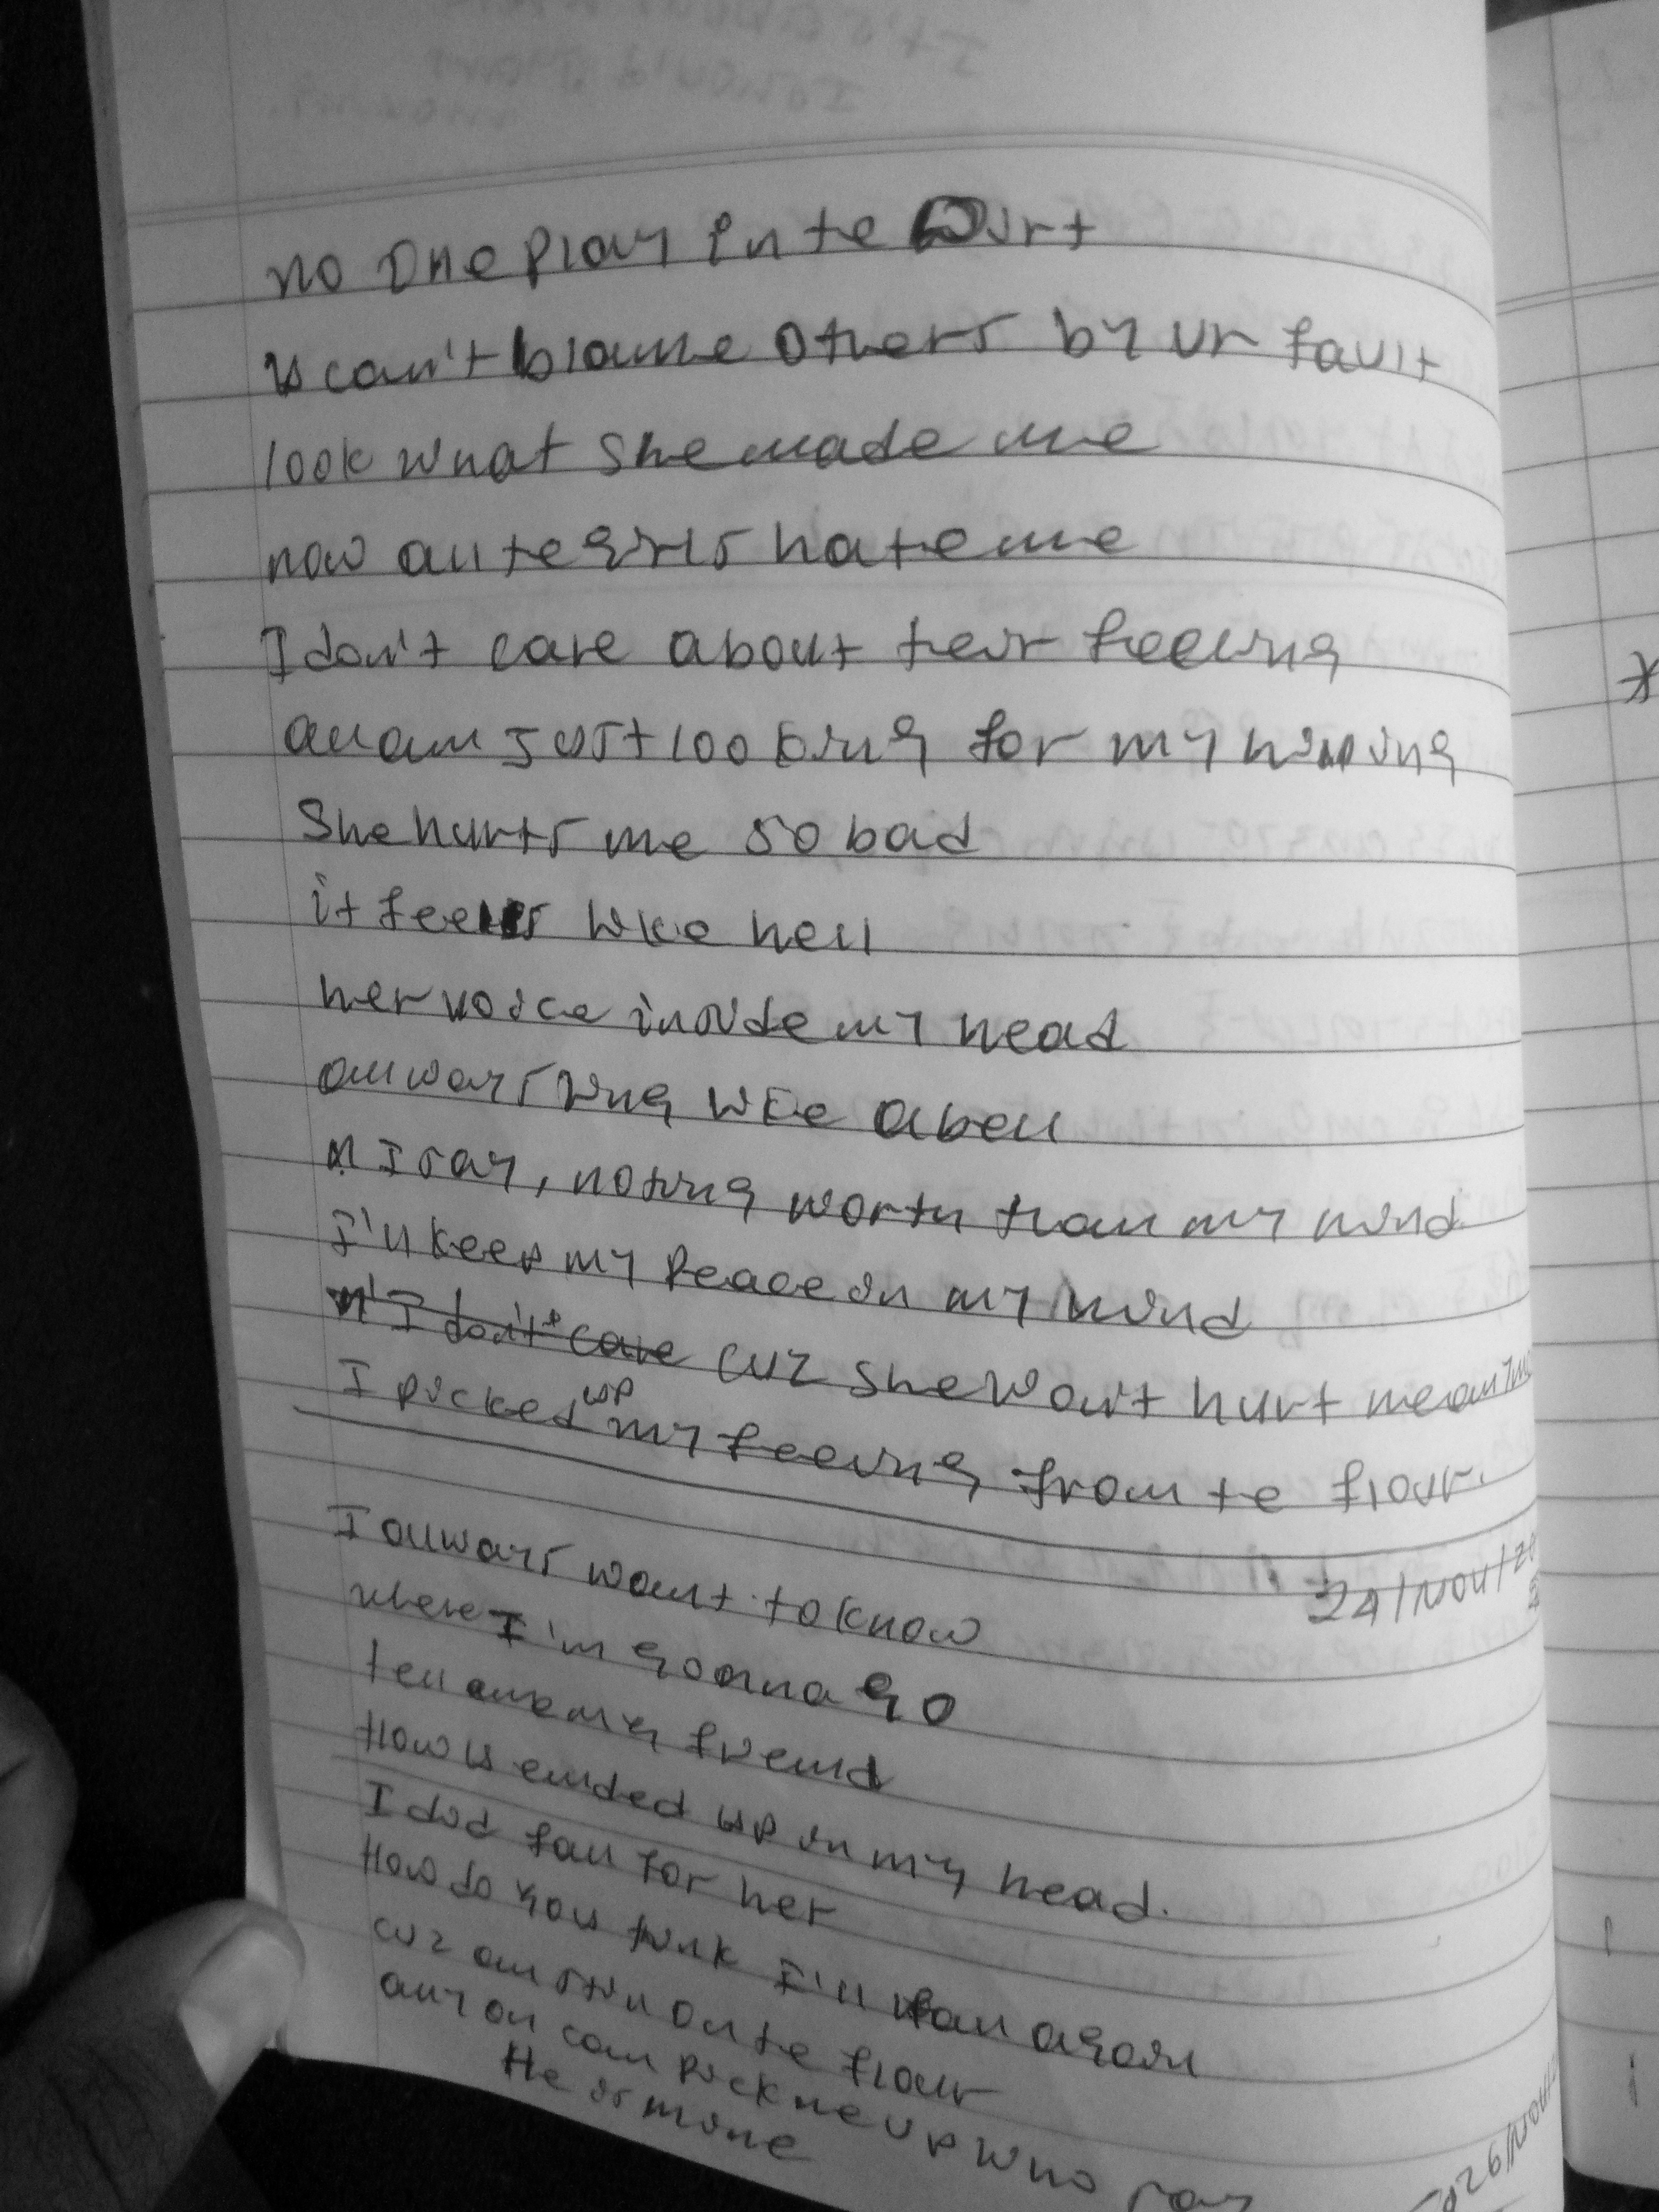 no one play in te Dirt
u can't blame others by ur fault
look what she made me
now all te girls hate me
I don't care about teir feeling
all am Just looking for my hipping
She hurts me so bad
it feels like hell
her voice inside my head
allways ring like a bell
n I say, noting worth than my mind
I'll keep my Peace in my mind
n I don't care cuz she won't hurt me
I picked up my feeling from te flour.
24/Nov/
I allways want to know
where I'm gonna go
tell me my friend
How u ended up in my head.
I did fall for her
How do you tink I'll fall again
cuz am still on te flour
any on can pick me up who say
He is mine